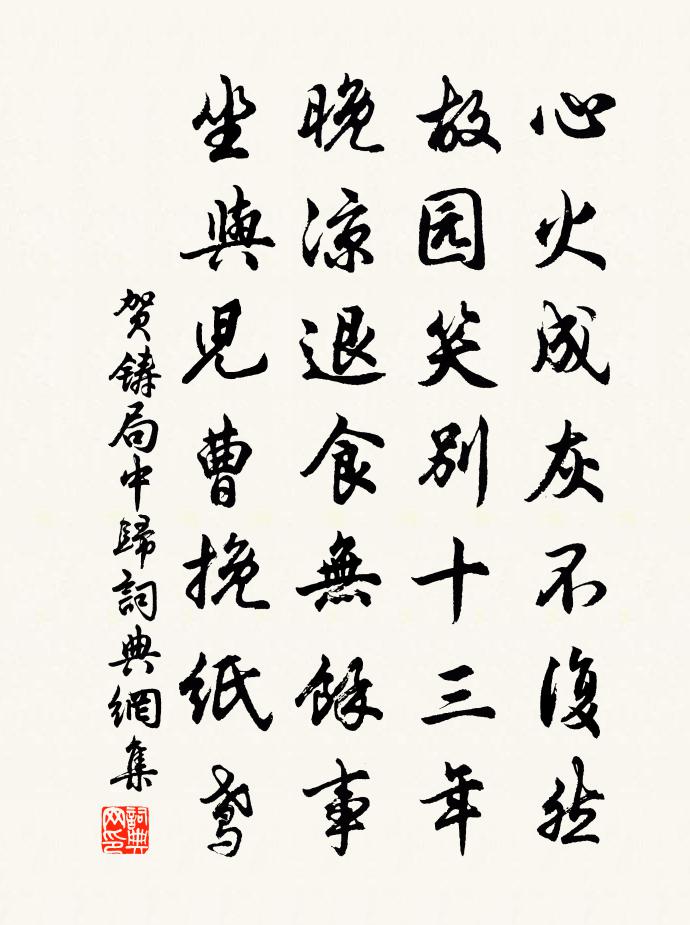 心火成灰不復然
故园笑別十三年
晚涼退食無餘事
坐與児曹挽紙鳶
贺鑄局中歸詞典網集
詞典網印